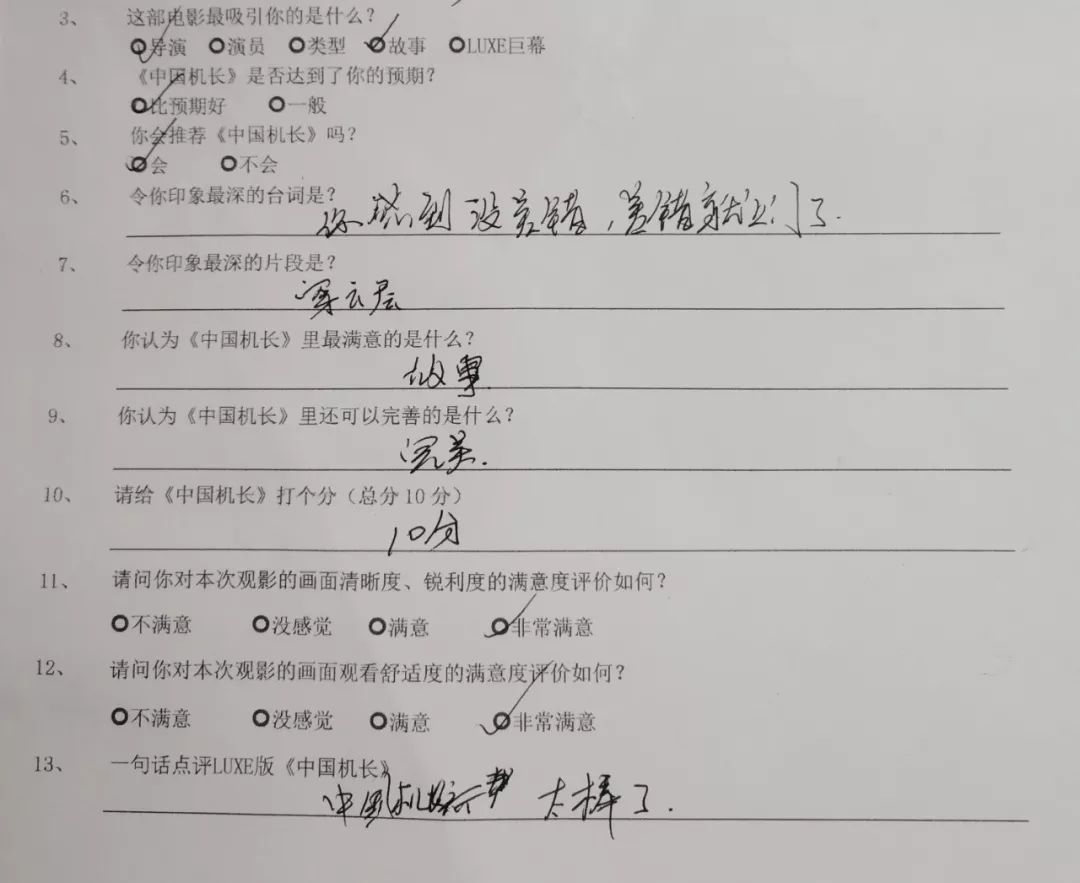 3、 这部电影最吸引你的是什么？
导演 演员 类型 故事 LUXE巨幕
4、 《中国机长》是否达到了你的预期？
比预期好 一般
5、 你会推荐《中国机长》吗？
会 不会
6、 令你印象最深的台词是？
你 到 没差错，差错就 了.
7、 令你印象最深的片段是？
穿云层
8、 你认为《中国机长》里最满意的是什么？
故事.
9、 你认为《中国机长》里还可以完善的是什么？
完美.
10、 请给《中国机长》打个分（总分10分）
10分
11、 请问你对本次观影的画面清晰度、锐利度的满意度评价如何？
不满意 没感觉 满意 非常满意
12、 请问你对本次观影的画面观看舒适度的满意度评价如何？
不满意 没感觉 满意 非常满意
13、 一句话点评LUXE版《中国机长》
中国机 太棒了.